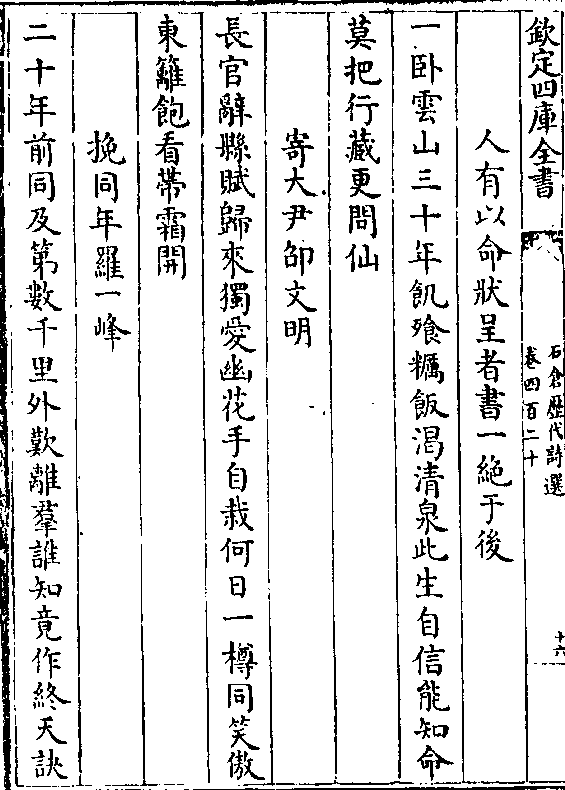 欽定四庫全書
石倉歷代詩選
卷四百二十
十六
人有以命狀呈者書一絶于後
一卧雲山三十年飢飱糲飯渴清泉此生自信能知命
莫把行藏更問仙
寄大尹邵文明
長官辭縣賦歸來獨愛幽花手自栽何日一樽同笑傲
東籬飽看帶霜開
挽同年羅一峰
二十年前同及第數千里外歎離羣誰知竟作終天訣